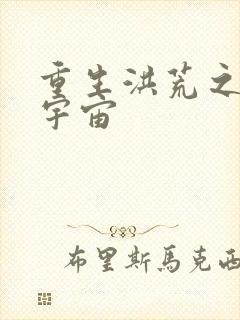 重生洪荒之
宇宙
布里斯馬克西